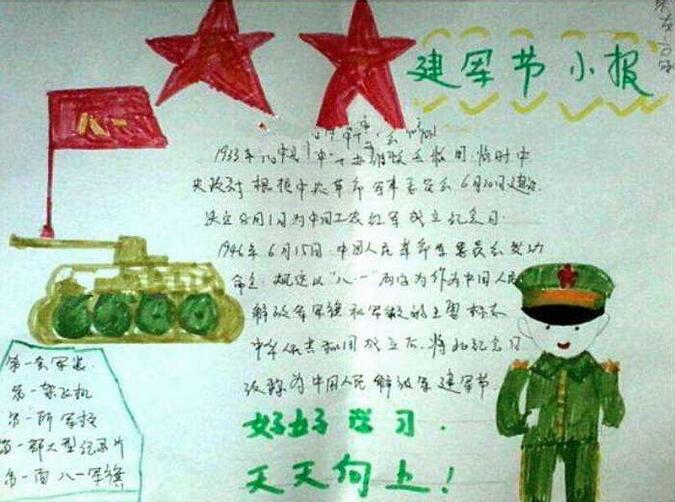 建军节小报
八一
1933年
中
央政府根据中央革命军事委员会6月30日建议
决定8月1日为中国工农红军成立纪念日
1946年6月15日.中国人民革命军事委员会发动
命令.规定以"八一"两字为作为中国人民
解放军军旗和军徽的主要标志
中华人民共和国成立后.将此纪念日
改称为中国人民解放军建军节
第一架飞机
第一所军校
第一部大型纪录片
第一面八一军旗
好好学习.
天天向上!